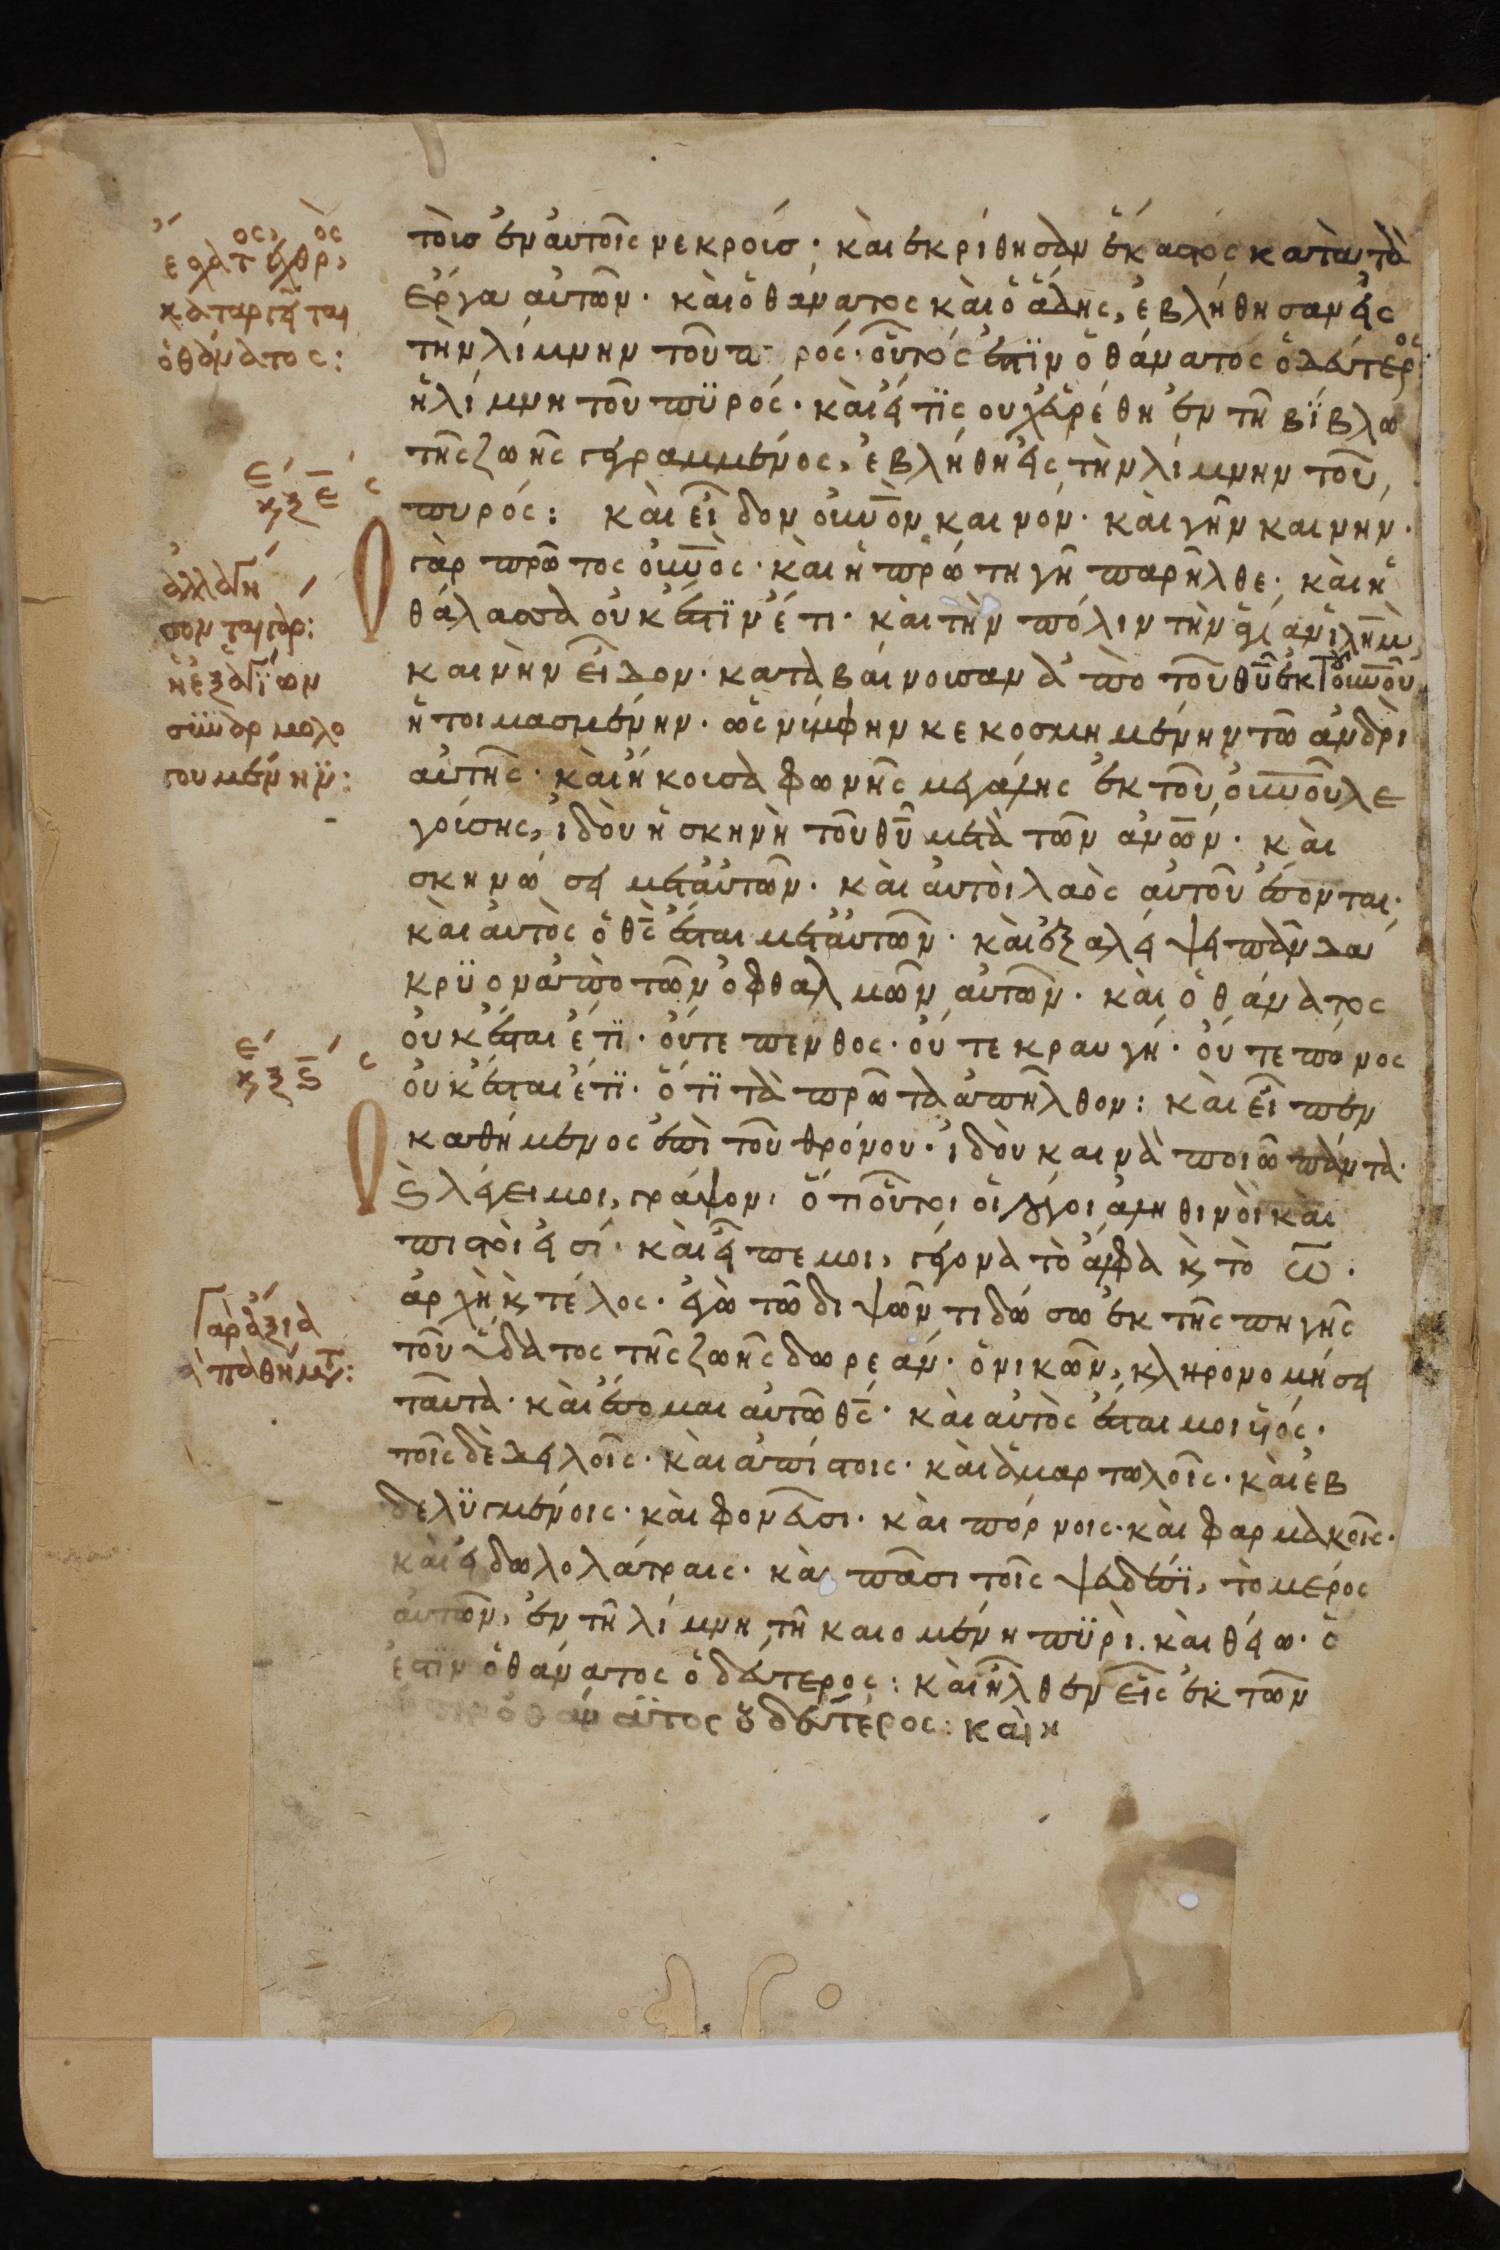 τοῖσ ἐν αὐτοῖς νεκροίσ· καὶ ἐκρίθησαν ἕκαστος κατὰ τὰ
ἔργα αὐτῶν. καὶ ὁ θάνατος καὶ ὁ ἅδης, ἐβλήθησαν εἰς
τὴν λίμνην τοῦ π ρός. οὗτός ἐστϊν ὁ θάνατος ὁ δεύτερος·
ἡ λίμνη τοῦ πϋρός. καὶ εἴ τϊς οὐχ εὑρέθη ἐν τῆ βΐβλω
τῆς ζωῆς γεγραμμένος, ἐβλήθη εἰς τὴν λίμνην τοῦ
πυρός: καὶ εἶδον οὐνὸν καινόν. καὶ γῆν καινην.
γὰρ πρῶτος οὐνὸς. καὶ ἡ πρώτη γῆ παρῆλθε. καὶ ἡ
θάλασσα οὐκ ἔστϊν ἔτι. καὶ τὴν πόλιν τὴν ἁγίαν ιλημ
καινὴν εἶδον. καταβαίνουσαν ἀπὸ τοῦ θυ ἐκ τοῦ οὐνοῦ
ἡτοιμασμένην. ὡς νύμφην κεκοσμημένην τῶ ἀνδρὶ
αὐτῆς. καὶ ἤκουσα φωνῆς μεγάλης ἐκ τοῦ οὐνοῦ λε
γούσης, ἰδοὺ ἡ σκηνὴ τοῦ θυ μετὰ τῶν ἀνων. καὶ
σκηνώσει μετ αὐτῶν. καὶ αὐτοὶ λαὸς αὐτοῦ ἔσονται.
καὶ αὐτὸς ὁ θς ἔσται μετ αὐτῶν. καὶ ἐξαλείψει πᾶν δά
κρϋον ἀπὸ τῶν ὀφθαλμῶν αὐτῶν. καὶ ὁ θάνατος
οὐκ ἔσται ἔτϊ. οὔτε πενθος. οὔτε κραυγή. οὔτε πόνος
οὐκ ἔσται ἔτϊ. ὅτϊ τὰ πρῶτα ἀπῆλθον: καὶ εἶπεν
καθήμενος ἐπὶ τοῦ θρόνου. ἰδοὺ καινὰ ποιῶ πάντα.
ϗ λέγει μοι, γράψον, ὅτι οὗτοι οἱ λόγοι ἀληθινοὶ καὶ
πιστοὶ εἰσί. καὶ εἶπε μοι, γέγονα τὸ ἄλφα ϗ τὸ ω.
ἀρχὴ ϗ τέλος. ἐγὼ τῶ διψῶντι δώσω ἐκ τῆς πηγῆς
τοῦ ὕδατος τῆς ζωῆς δωρεάν. ὁ νικῶν, κληρονομήσει
ταῦτα. καὶ ἔσομαι αὐτῶ θς. καὶ αὐτὸς ἔσται μοι υἱός.
τοῖς δὲ δειλοῖς. καὶ ἀπίστοις. καὶ ἁμαρτωλοῖς. καὶ ἐβ
δελϋγμένοις. καὶ φονεῦσι. καὶ πόρνοις. καὶ φαρμακοῖς.
καὶ εἰδωλολάτραις. κα πᾶσι τοῖς ψευδέσϊ, τὸ μέρος
αὐτῶν, ἐν τῆ λίμνη τῆ καιομένη πϋρὶ. καὶ θείω. ὁ
ἐστϊν ὁ θάνατος ὁ δεύτερος: καὶ ἦλθεν εἷς ἐκ τῶν
ὁ θάνατος ὁ δεύτερος: καὶ η
ἔσχατος ἐχθρὸς
καταργεῖται
ὁ θάνατος:
κξ ε
ἀλλαγή
σονται γὰρ:
κξ ς